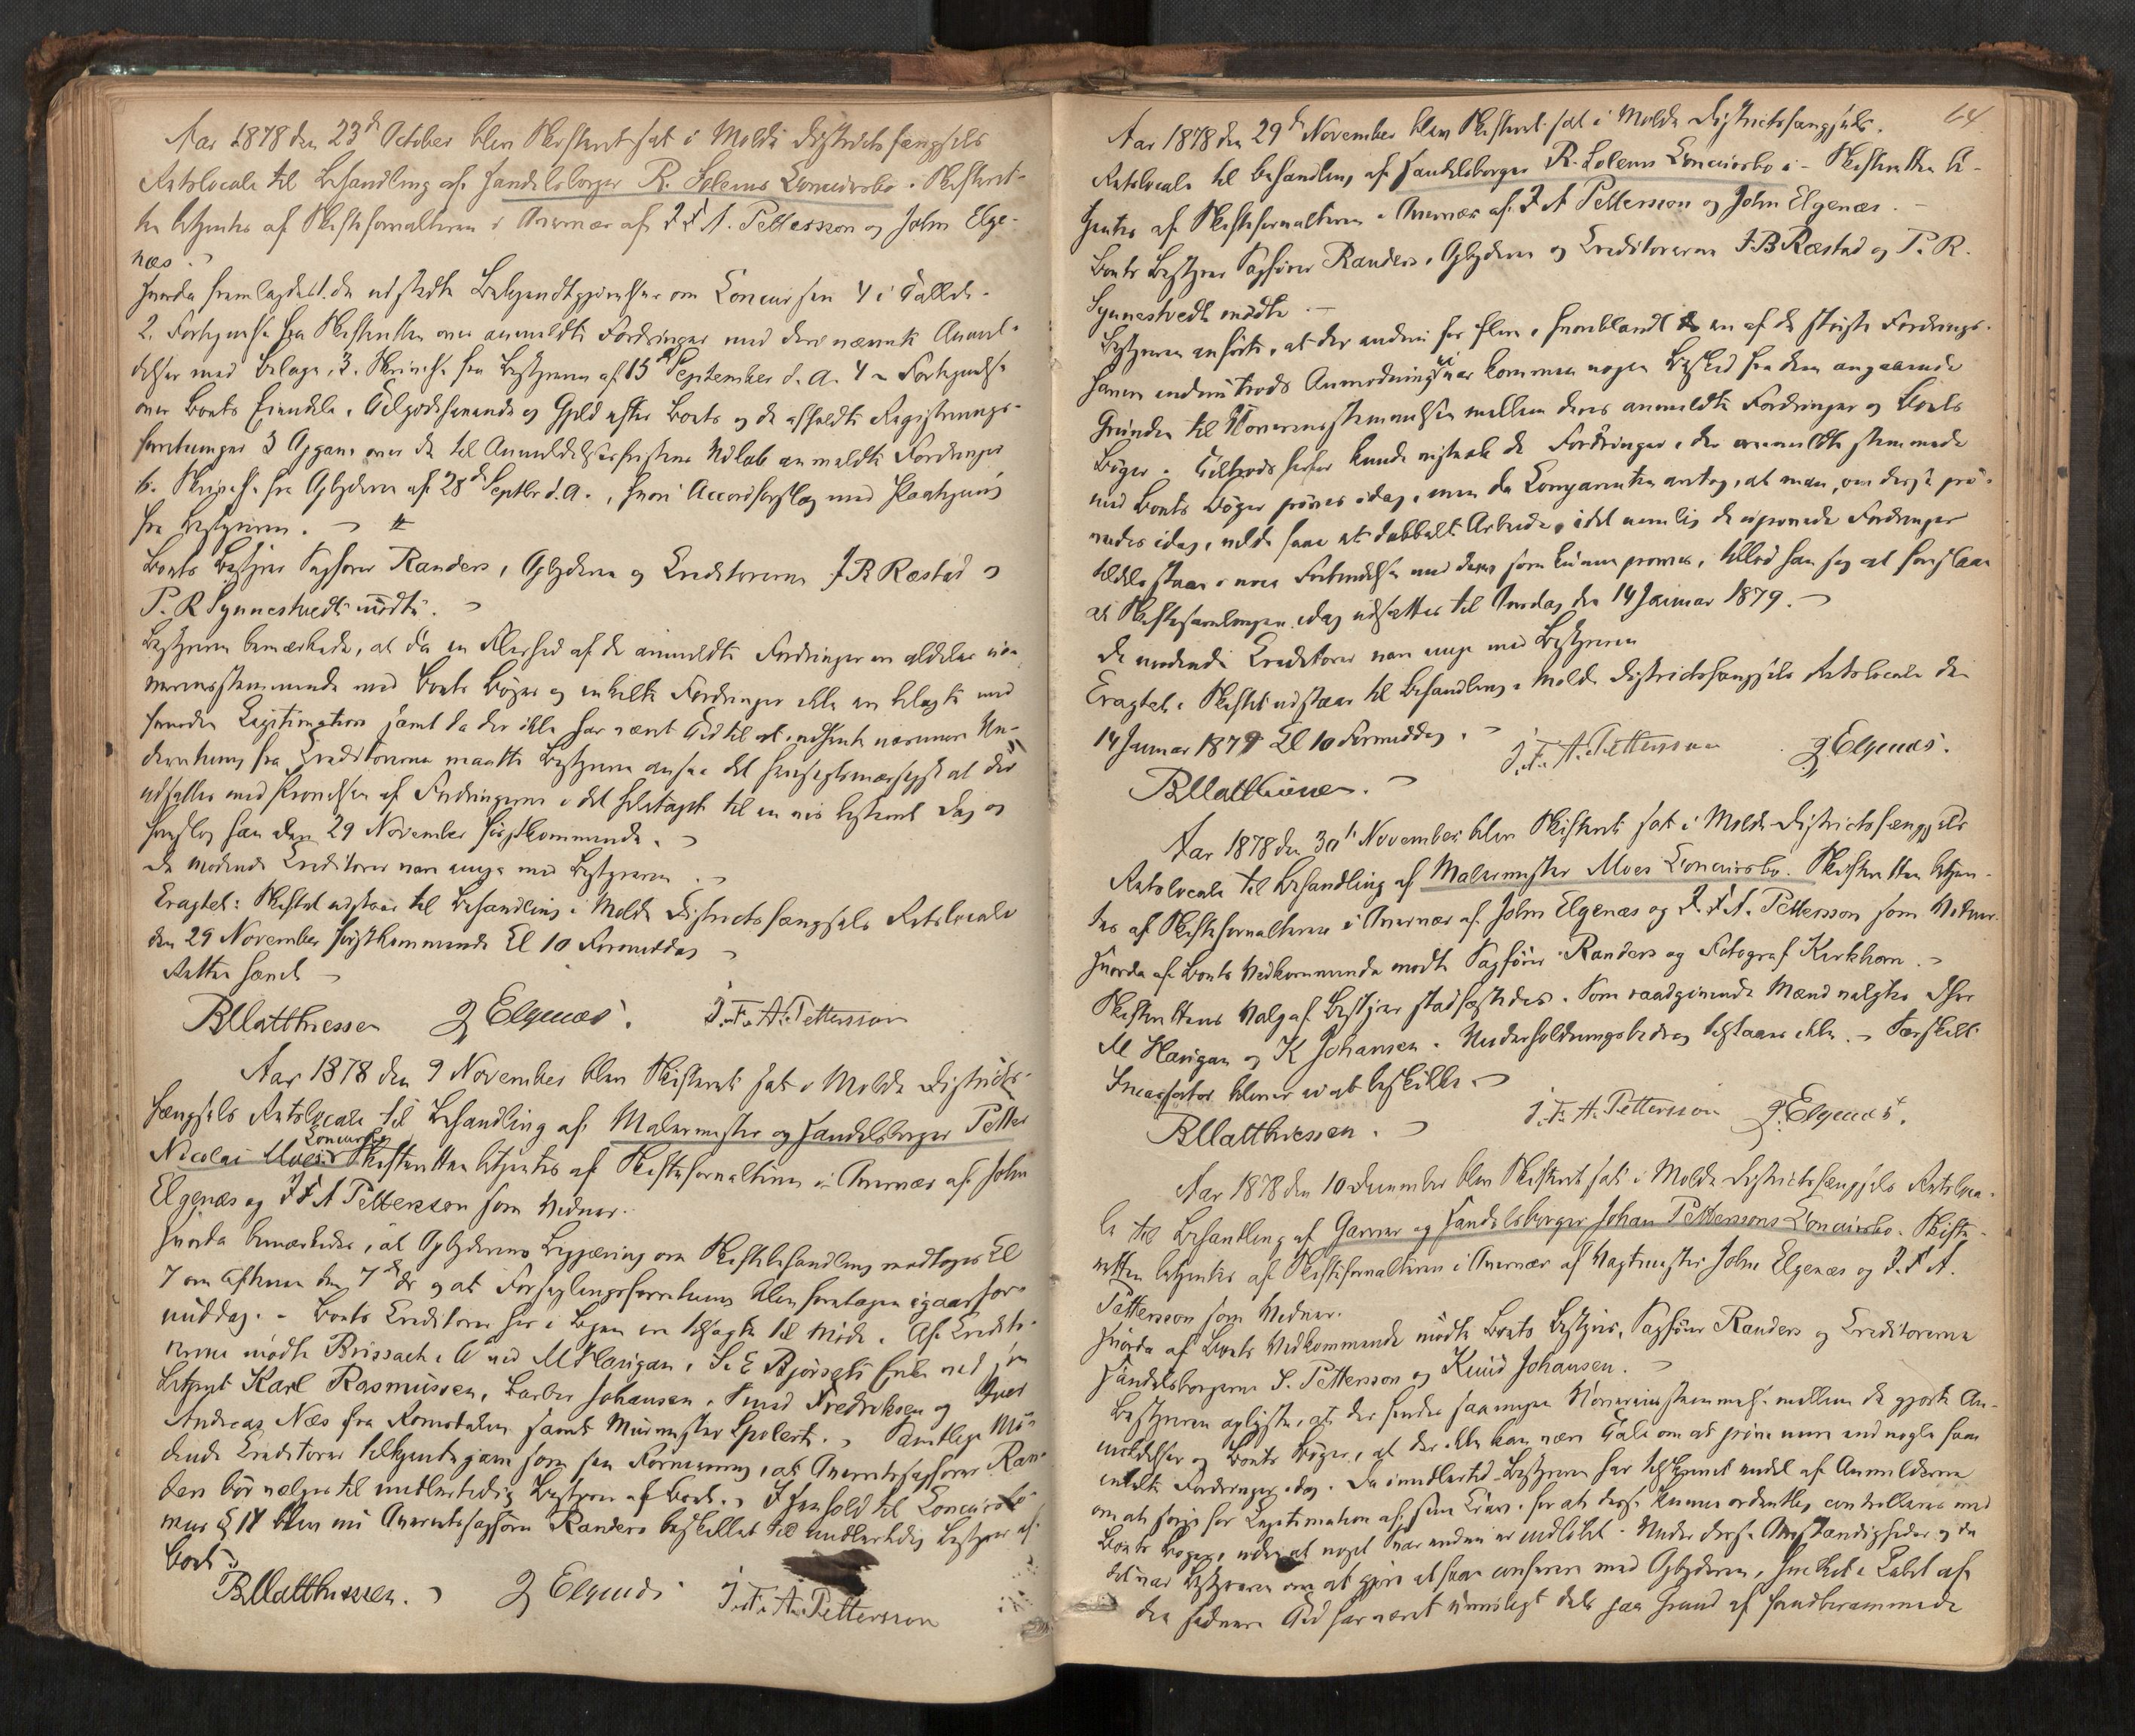 Aar 1878 den 23d October blev Skifteret sat i Molde Districtsfængsels
Retslocale til Behandling af Handelsborger R. Solems Concursbo. Skifteret-
ten betjentes af Skifteforvalteren i Overvær af J F A. Pettersson og John Elge-
næs.
Hvorda fremlagdes 1. de udstedte Bekjendtgjørelser om Concursen 4 i Tallet.
2. Fortegnelse fra Skifteretten over anmeldte Fordringer med deri nævnte Anmel-
delser med Bilage, 3. Skrivelse fra Bestyreren af 15de September d. A. 4 Fortegnelse
over Boets Eiendele, Tilgodehavende og Gjeld efter Boets og de afholdte Registrerings-
forretninger 5 Opgave over de til Anmeldelsesfristens Udløb anmeldte Fordringer
6. Skrivelse fra Opbyderen af 28de Septbr d. A., hvori Accordforslag med Paategning
fra Bestyreren.
Boets Bestyrer Sagfører Randers, Opbyderen og Creditorerne J. B Ræstad og
P. R Synnestvedt mødte.
Bestyreren bemærkede, at da en Flerhed af de anmeldte Fordringer er aldeles uo-
verensstemmende med Boets Bøger og enkelte Fordringer ikke er belagte med
fornøden Legitimation samt da der ikke har været Tid til at indhente nærmere Un-
derretning fra Creditorerne maatte Bestyreren ansee det hensigtsmæssigst at det
udsættes med Prøvelsen af Fordringerne i det Heletaget til en vis bestemt Dag og
foreslog han den 29 November førstkommende.
De mødende Creditorer vare enige med Bestyreren.
Eragtet: Skiftet udstaar til Behandling i Molde Districtsfængsels Retslocale
den 29 November førstkommende Cl 10 Formiddag
Retten hævet
B Matthiessen J Elgenæs. J. F. A. Pettersson
Aar 1878 den 9 November blev Skifteret sat i Molde Districts-
fængsels Retslocale til Behandling af Malermester og Handelsborger Petter
Nicolai Moes Concursbo Skifteretten betjentes af Skifteforvalteren i Overvær af John
Elgenæs og J F A Pettersson som Vidner.
Hvorda bemærkedes, at Opbyderens Begjæring om Skiftebehandling modtoges Cl
7 om Aftenen den 7de ds og at Forseglingsforretning blev foretagen igaar for-
middag. - Boets Creditorer her i Byen er tilsagte til Møde. Af Credito-
rerne mødte Brissach, ved M Hanigan, S. E Bjørsets Enke ved sin
Betjent Karl Rasmussen, Barber Johansen, Smed Fredriksen og
Andreas Næs fra Romsdalen samt Muurmester Spolert. Samtlige Mø-
dende Creditorer tilkjendegave som sin Formening, at Overretssagfører Ran-
ders bør vælges til midlertidig Bestyrer af Boet. I Henhold til Concurslo-
vens § 17 blev nu Overretssagfører Randers beskikket til midlertidig Bestyrer af
Boet.
B Matthiessen. J Elgenæs J. F. A. Pettersson
64
Aar 1878 den 29de November blev Skifteret sat i Molde Districtsfængsels
Retslocale til Behandling af Handelsborger R. Solems Concursbo. Skifteretten be-
tjentes af Skifteforvalteren i Overvær af J F A Pettersson og John Elgenæs.
Boets Bestyrer Sagfører Randers, Opbyderen og Creditorerne J. B Ræstad og P. R.
Synnestvedt mødte.
Bestyreren anførte, at der endnu for flere, hvoriblandt en af de største Fordrings-
havere endnu trods Anmodning ei var kommen nogen Besked fra dem angaaende
Grunden til Uoverensstemmelsen mellem deres anmeldte Fordringer og Boets
Bøger. Tiltrods herfor kunde vistnok de Fordringer, der overensstemmede
med Boets Bøger prøves idag, men da Comparenten antog, at man, om disse prø-
vedes idag, vilde faae et dobbelt Arbeide, idet nemlig de uprøvede Fordringer
tildels staar i nøie Forbindelse med dem som kunne prøves, tillod han sig at foreslaa
at Skiftesamlingen idag udsættes til Tirsdag den 14 Januar 1879.
De mødende Creditorer vare enige med Bestyreren
Eragtet: Skiftet udstaar til Behandling i Molde Districtsfængsels Retslocale den
14 Januar 1879 Cl 10 Formiddag.
B Matthiessen. J. F. A. Pettersson J. Elgenæs.
Aar 1878 den 30te November blev Skifteret sat i Molde Districtsfængsels
Retslocale til Behandling af Malermester Moes Concursbo. Skifteretten betjen-
tes af Skifteforvalteren i Overvær af John Elgenæs og J. F A. Pettersson som Vidner.
Hvorda af Boets Vedkommende mødte Sagfører Randers og Fotograf Kirkhorn.
Skifterettens Valg af Bestyrer stadfæstedes. Som raadgivende Mænd valgtes Dhrr
M Hanigan og K Johansen. Underholdningsbidrag tilstaaes ikke. Særskilt
Incassator bliver ei at beskikke.
B Matthiessen. J. F. A. Pettersson J. Elgenæs.
Aar 1878 den 10 December blev Skifteret sat i Molde Districtsfængsels Retsloca-
le til Behandling af Garver og Handelsborger Johan Petterssons Concursbo. Skifte-
retten betjentes af Skifteforvalteren i Overvær af Vagtmester John Elgenæs og J. F A.
Pettersson som Vidner.
Hvorda af Boets Vedkommende mødte Boets Bestyrer, Sagfører Randers og Creditorerne
Handelsborgerne S. Pettersson og Knud Johansen.
Bestyreren oplyste, at der fandtes saamegen Uoverensstemmelse mellem de gjorte An-
meldelser og Boets Bøger, at der ikke kan være Tale om at prøve mere end nogle faa
enkelte Fordringer idag. Da imidlertid Bestyreren har tilskrevet endel af Anmelderne
om at sørge for Legitimation af sine Krav, for at disse kunne ordentlig controlleres med
Boets Bøger, uden at noget Svar endnu er indløbet. Under disse Omstændigheder og da
det var Bestyreren om at gjøre at faae conferere med Opbyderen, hvilket i Løbet af
den sednere Tid har været umuligt dels paa Grund af